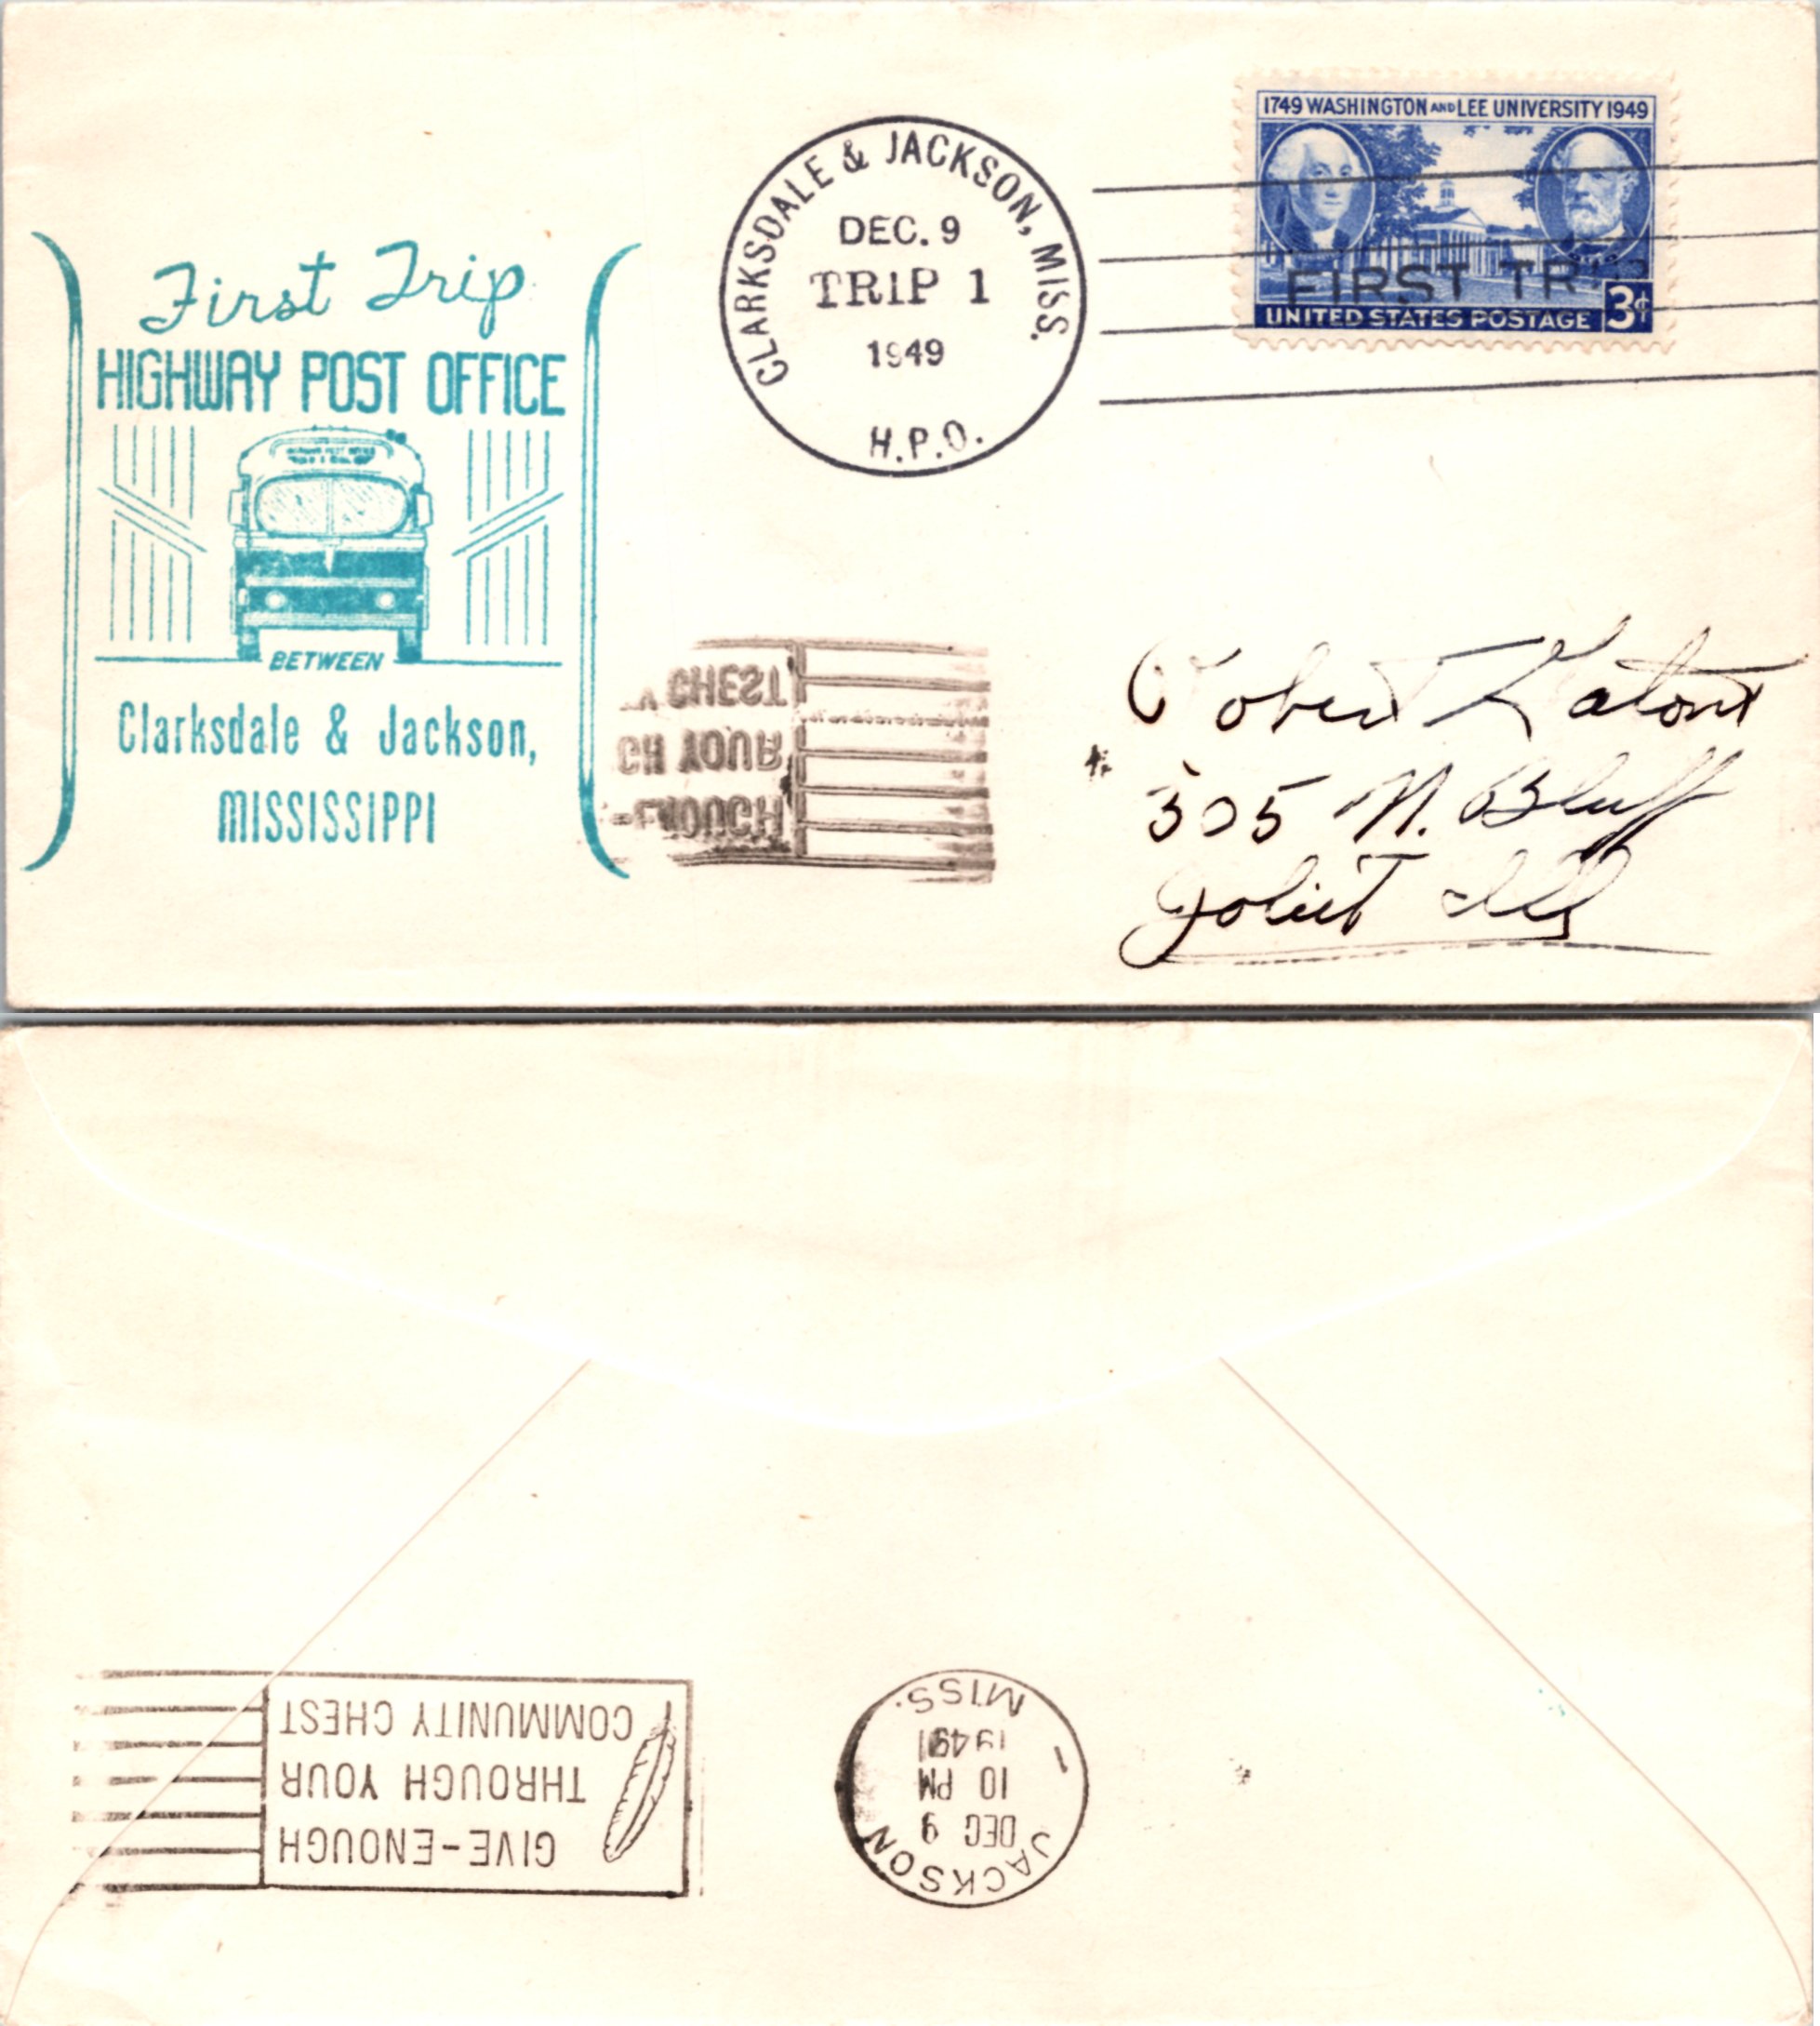 First Trip
HIGHWAY POST OFFICE
BETWEEN
Clarksdale & Jackson,
MISSISSIPPI
CLARKSDALE & JACKSON, MISS.
DEC. 9
TRIP 1
1949
H.P.O.
1749 WASHINGTON AND LEE UNIVERSITY 1949
FIRST TRI
UNITED STATES POSTAGE 3¢
-ENOUGH
GH YOUR
Y CHEST
Robert
305 N. Bluff
Joliet Ill
GIVE-ENOUGH
THROUGH YOUR
COMMUNITY CHEST
JACKSON
DEC 9
10 PM
1949
MISS.